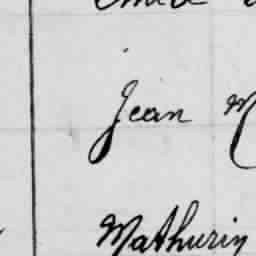 Jean M
Mathurin